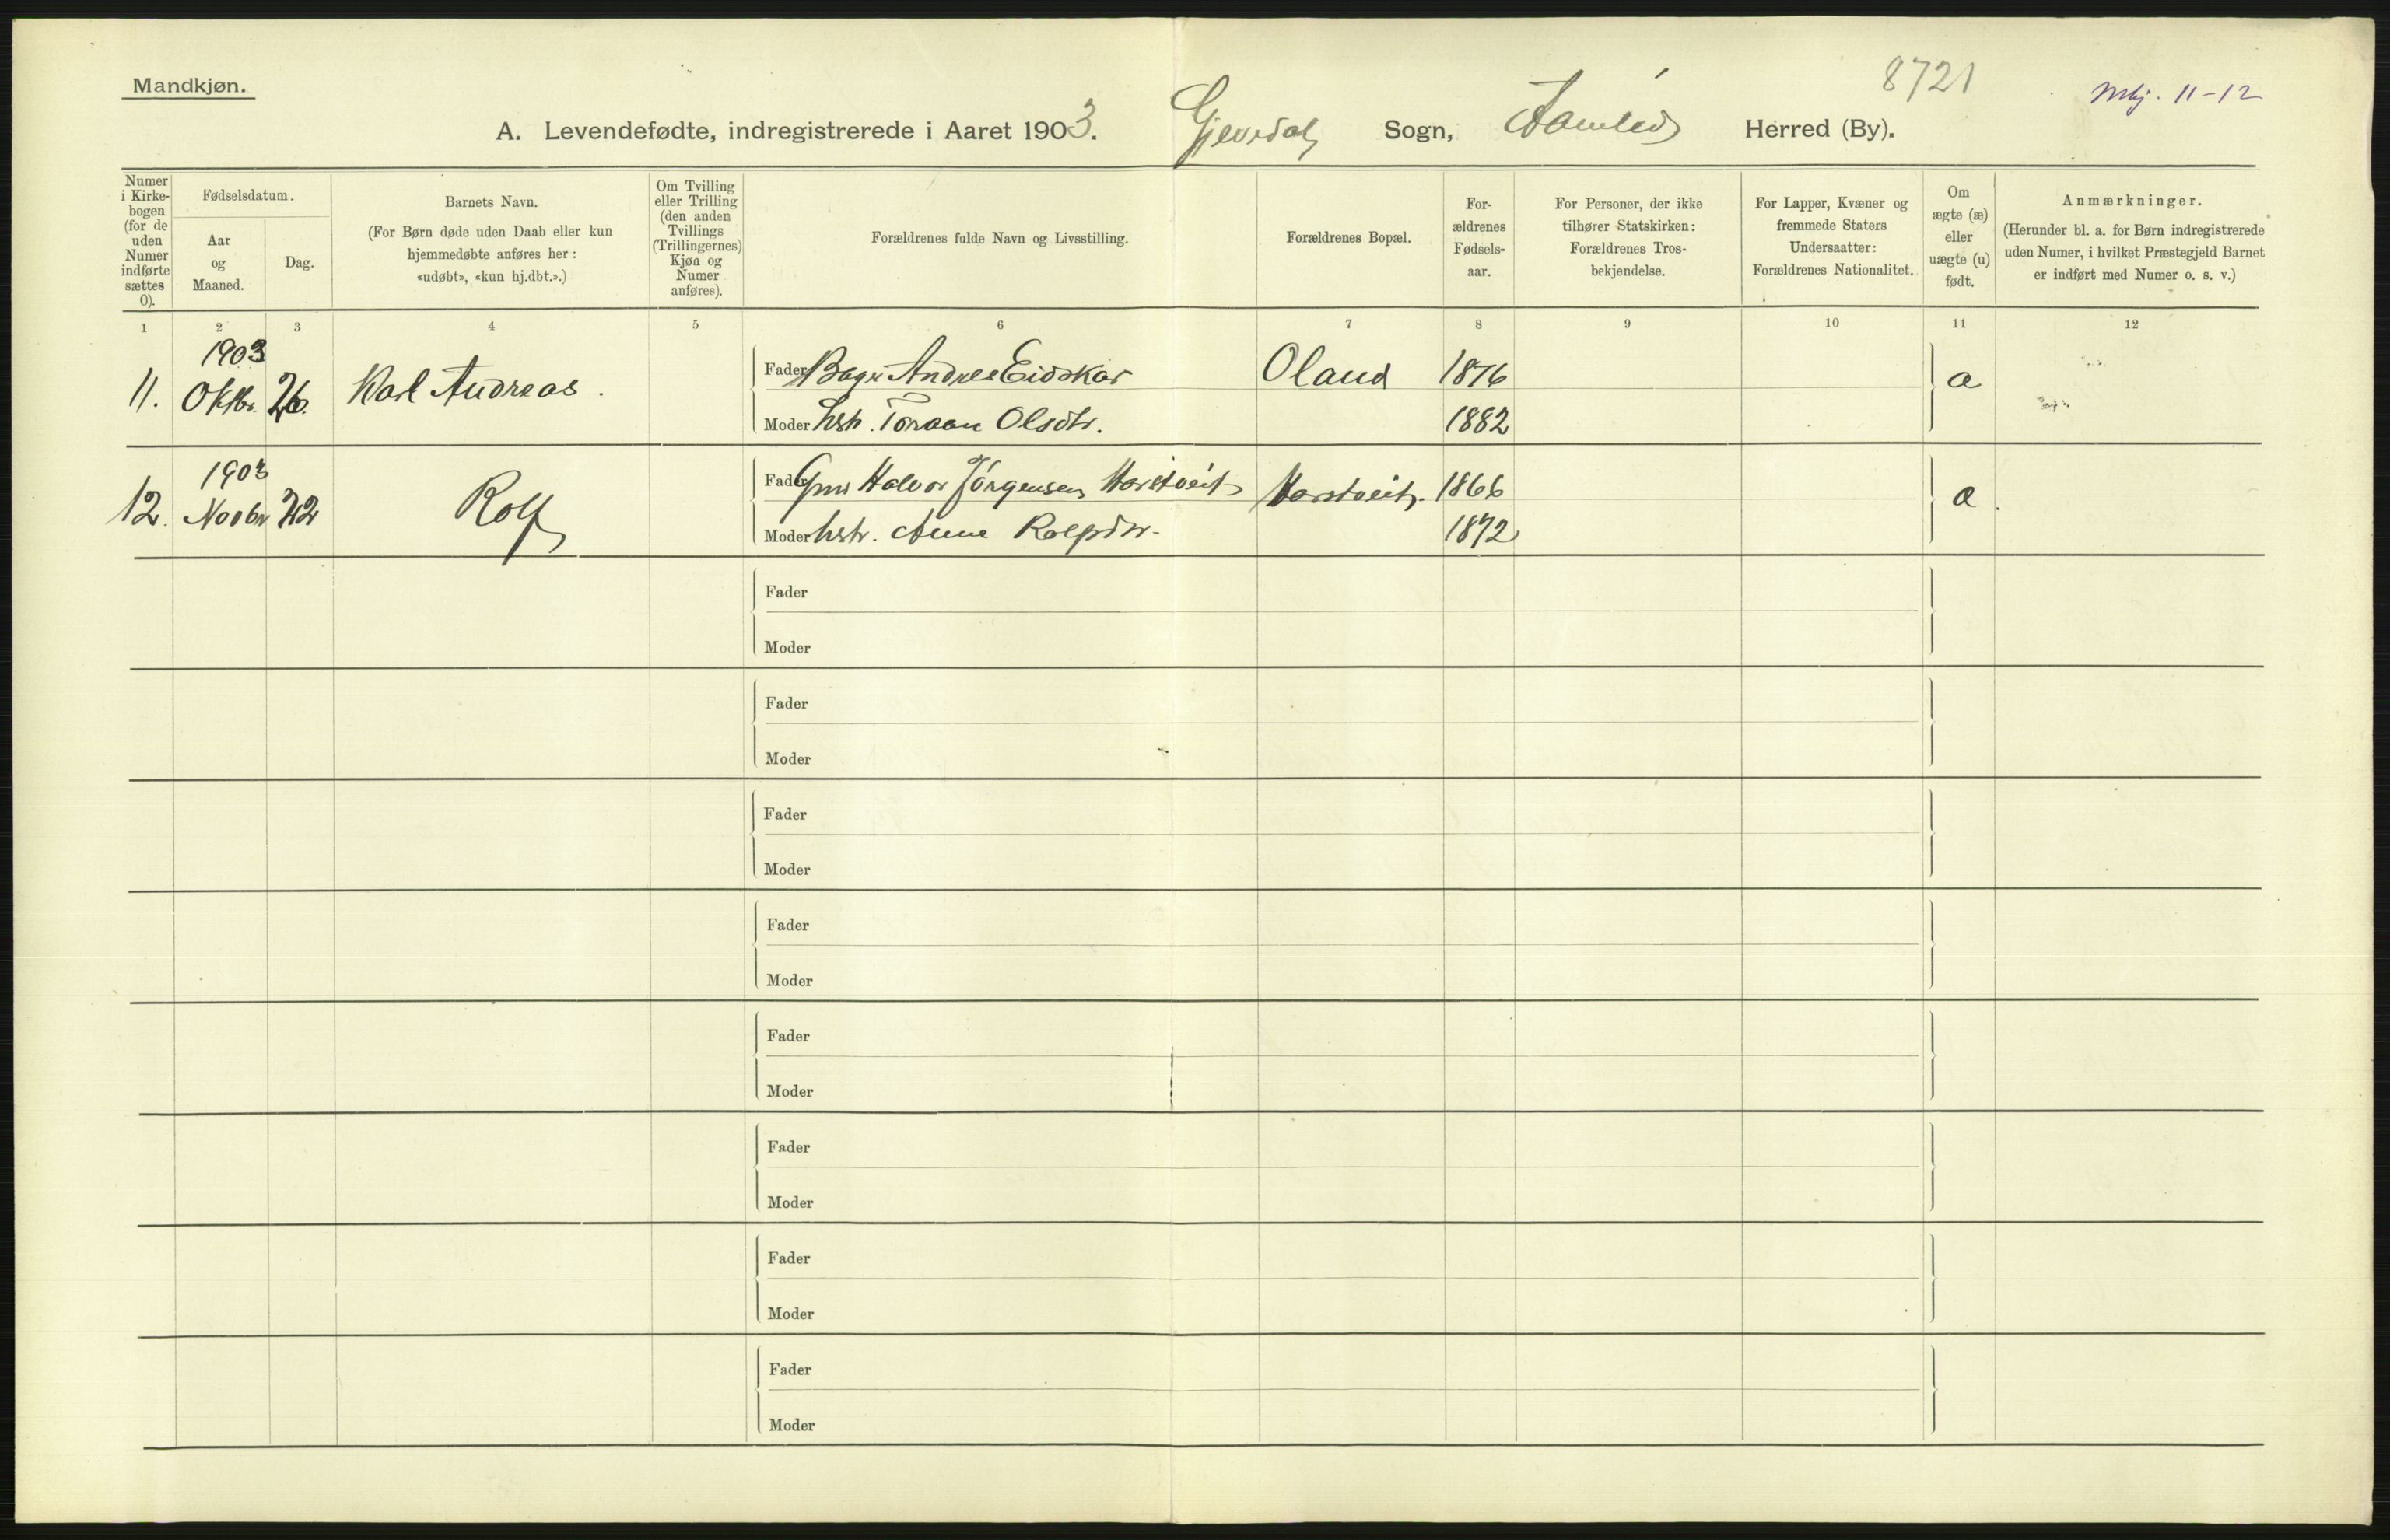 Mandkjøn.
8721
Mkj. 11-12
A. Levendefødte, indregistrerede i Aaret 1903. Gjevedal Sogn, Aamlid Herred (By).
Numer i Kirke-bogen (for de uden Numer indførte sættes 0).
Fødselsdatum.
Aar og Maaned.
Dag.
Barnets Navn.
(For Børn døde uden Daab eller kun
hjemmedøbte anføres her:
«udøbt», «kun hj.dbt.».)
Om Tvilling
eller Trilling
(den anden
Tvillings
(Trillingernes)
Kjøn og
Numer
anføres).
Forældrenes fulde Navn og Livsstilling.
Forældrenes Bopæl.
For-
ældrenes
Fødsels-
aar.
For Personer, der ikke
tilhører Statskirken:
Forældrenes Tros-
bekjendelse.
For Lapper, Kvæner og
fremmede Staters
Undersaatter:
Forældrenes Nationalitet.
Om
ægte (æ)
eller
uægte (u)
født.
Anmærkninger.
(Herunder bl. a. for Børn indregistrerede
uden Numer, i hvilket Præstegjeld Barnet
er indført med Numer o. s. v.)
1 2 3 4 5 6 7 8 9 10 11 12
1903
11. Oktbr. 26. Karl Andreas. Fader Bager Andres Eidskar Oland 1876 æ
Moder hstr. Toraan Olsdtr. 1882
1903
12. Novbr 22 Rolf Fader Gmr Halvor Jörgensen Harstveit Harstveit. 1866 æ.
Moder hstr. Anne Rolfsdtr. 1872
Fader
Moder
Fader
Moder
Fader
Moder
Fader
Moder
Fader
Moder
Fader
Moder
Fader
Moder
Fader
Moder